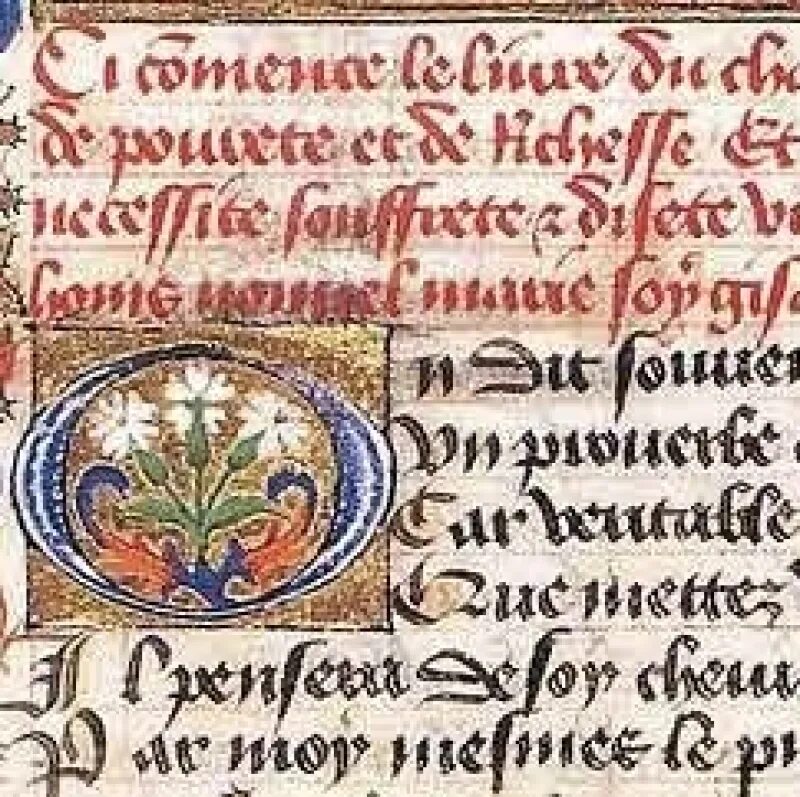 Ci cōmence le liure du cha
de pourete et de richesse Et
necessite souffrete ⁊ disete vo
home nouuel marie soy gisa
On dit souuen
Vn prouerbe
Car veritable
Que mettez
Il pensera de soy cheua
Par moy mesmes le pr